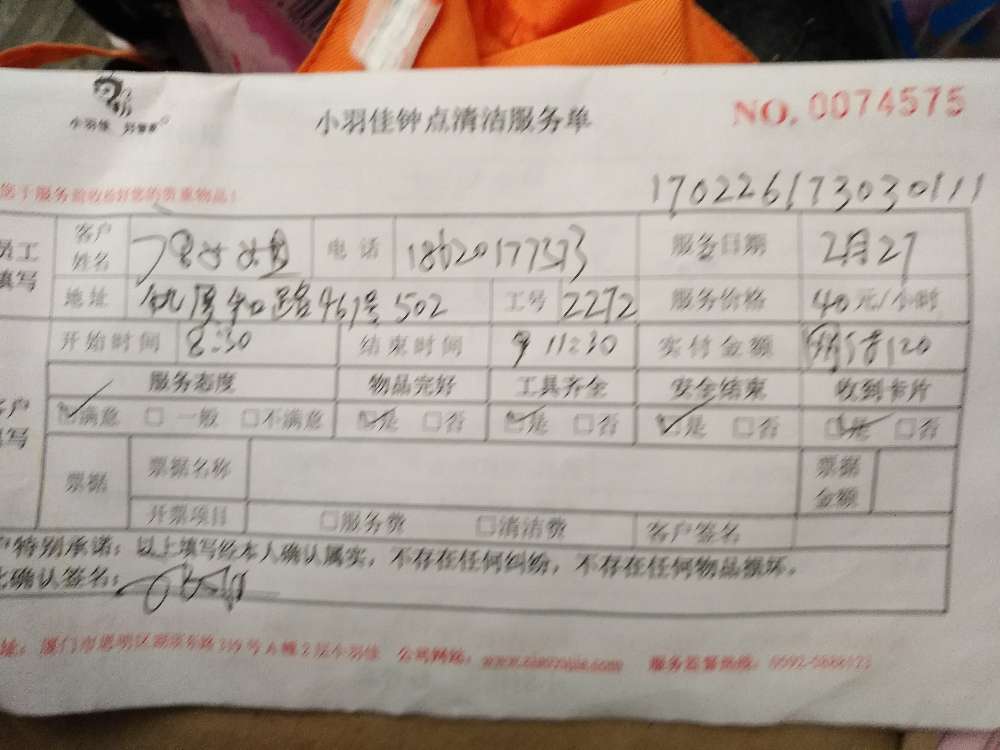 小羽佳钟点清洁服务单
NO. 0074575
小羽佳 好管家
服务前收拾好您的贵重物品!
170226173030111
员工填写
客户姓名
电话 18620177373
服务日期 2月27
地址 路461号502
工号 2272
服务价格 40元/小时
开始时间 8:30
结束时间 11:30
实付金额 120
服务态度 物品完好 工具齐全 安全结束 收到卡片
满意 □ 一般 □不满意 是 □否 是 □否 是 □否 是 □否
票据 票据名称 票据金额
开票项目 □服务费 □清洁费 客户签名
户特别承诺:以上填写经本人确认属实,不存在任何纠纷,不存在任何物品损坏。
此确认签名:
址:厦门市思明区 319号A幢2层小羽佳 公司网站: 服务监督热线: